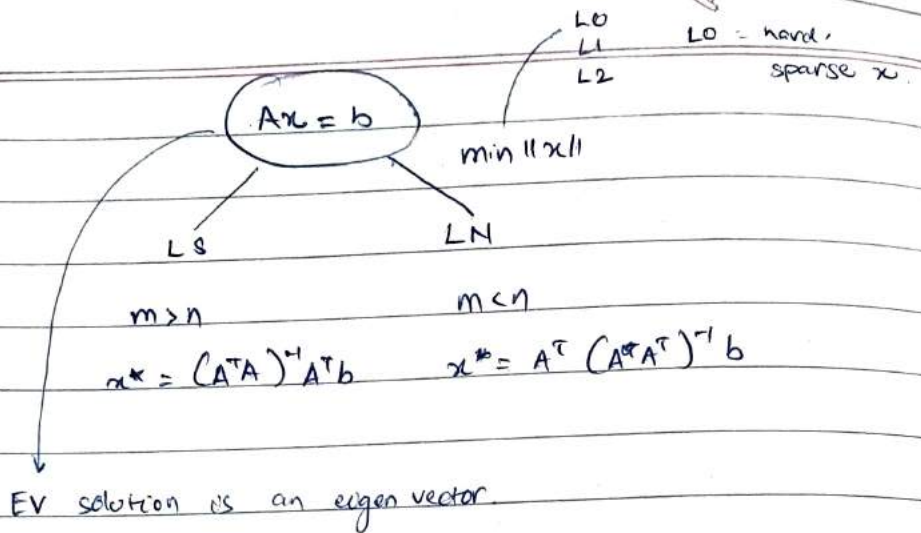 L0
L1
L2
L0 = hard,
sparse x.
Ax = b
min ||x||
LS
LN
m>n
m<n
x* = (AᵀA)⁻¹Aᵀb
x* = Aᵀ (AAᵀ)⁻¹ b
EV solution is an eigen vector.